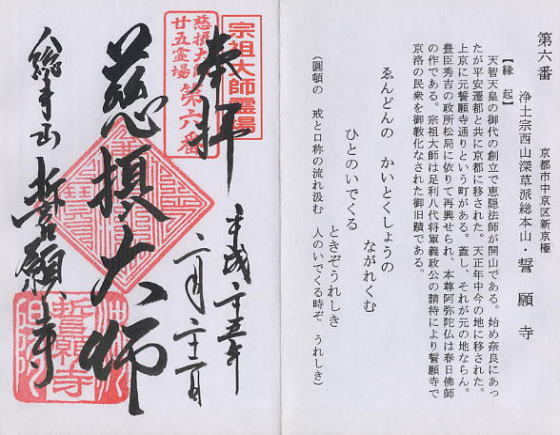 第六番
京都市中京区新京極
浄土宗西山深草派総本山・誓願寺
【縁起】
天智天皇の御代の創立で恵隠法師が開山である。始め奈良にあっ
たが平安遷都と共に京都に移された。天正年中今の地に移された。
上京に元誓願寺通りという町がある。蓋し、それが元の地ならん。
豊臣秀吉の政所松局に依りて再興せられ、本尊阿弥陀仏は春日佛師
の作である。宗祖大師は足利八代将軍義政公の請待により誓願寺で
京洛の民衆を御教化なされた御旧蹟である。
ゑんどんの かいとくしょうの
ながれくむ
ひとのいでくる
ときぞうれしき
(圓頓の 戒と口称の流れ汲む 人のいでくる時ぞ うれしき)
宗祖大師霊場
慈摂大師
廿五霊場
第六番
奉拝
平成二十五年
慈摂大師
総本山 誓願寺
誓願寺